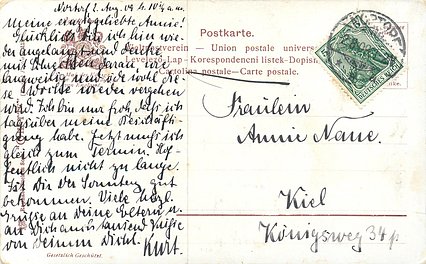 Nortorf 2. Aug. 09
meine einziggeliebte Annie!
Glücklich bin ich hier wie-
der angelangt und denke
mit
langweilig und öde wohl die-
se Woche wieder vergehen
wird. Ich bin nur froh, daß ich
tagsüber meine Beschäfti-
gung habe. Jetzt muß ich
gleich zum Termin. Hof-
fentlich nicht zu lange.
Ist Dir der Sonntag gut
bekommen. Viele herzl.
Grüße an Deine Eltern u.
an Dich tausend Küsse
von Deinem Dich l.
Kurt.
Gesetzlich Geschützt.
Postkarte.
Weltpostverein — Union postale univers
Levelező-Lap - Korespondenční lístek - Dopis
Cartolina postale—Carte postale.
Fräulein
Annie Naue.
Kiel
Königsweg 34 p.